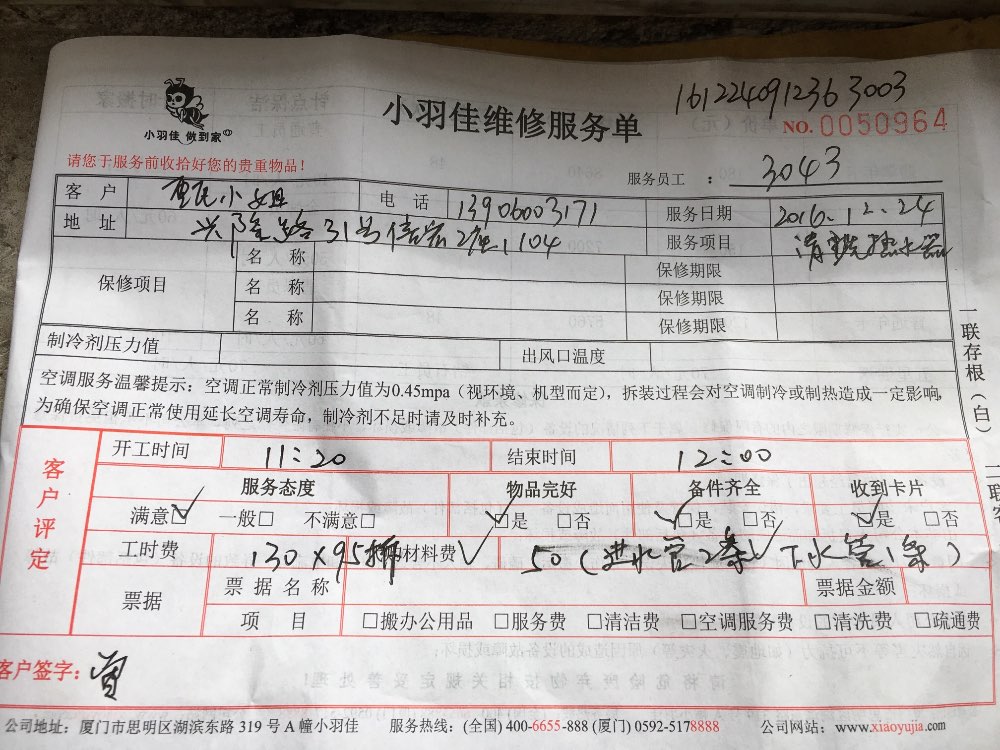 161224091236 3003
小羽佳 做到家
小羽佳维修服务单
NO. 0050964
请您于服务前收拾好您的贵重物品！
服务员工 ： 3043
客 户 小姐 电 话 13906003171 服务日期 2016.12.24
地 址 兴隆路31号信宏2座1104 服务项目 清洗热水器
保修项目 名 称 保修期限
名 称 保修期限
名 称 保修期限
制冷剂压力值 出风口温度
空调服务温馨提示：空调正常制冷剂压力值为0.45mpa（视环境、机型而定），拆装过程会对空调制冷或制热造成一定影响,
为确保空调正常使用延长空调寿命，制冷剂不足时请及时补充。
一联存根（白）
客户评定 开工时间 11:20 结束时间 12:00
服务态度 物品完好 备件齐全 收到卡片
满意☑ 一般□ 不满意□ ☑是 □否 ☑是 □否 ☑是 □否
工时费 130×95折 材料费 50（进水管2条 下水管1条）
票据 票据名称 票据金额
项 目 □搬办公用品 □服务费 □清洁费 □空调服务费 □清洗费 □疏通费
客户签字：
公司地址：厦门市思明区湖滨东路 319 号 A 幢小羽佳 服务热线：(全国) 400-6655-888 (厦门) 0592-5178888 公司网站：www.xiaoyujia.com